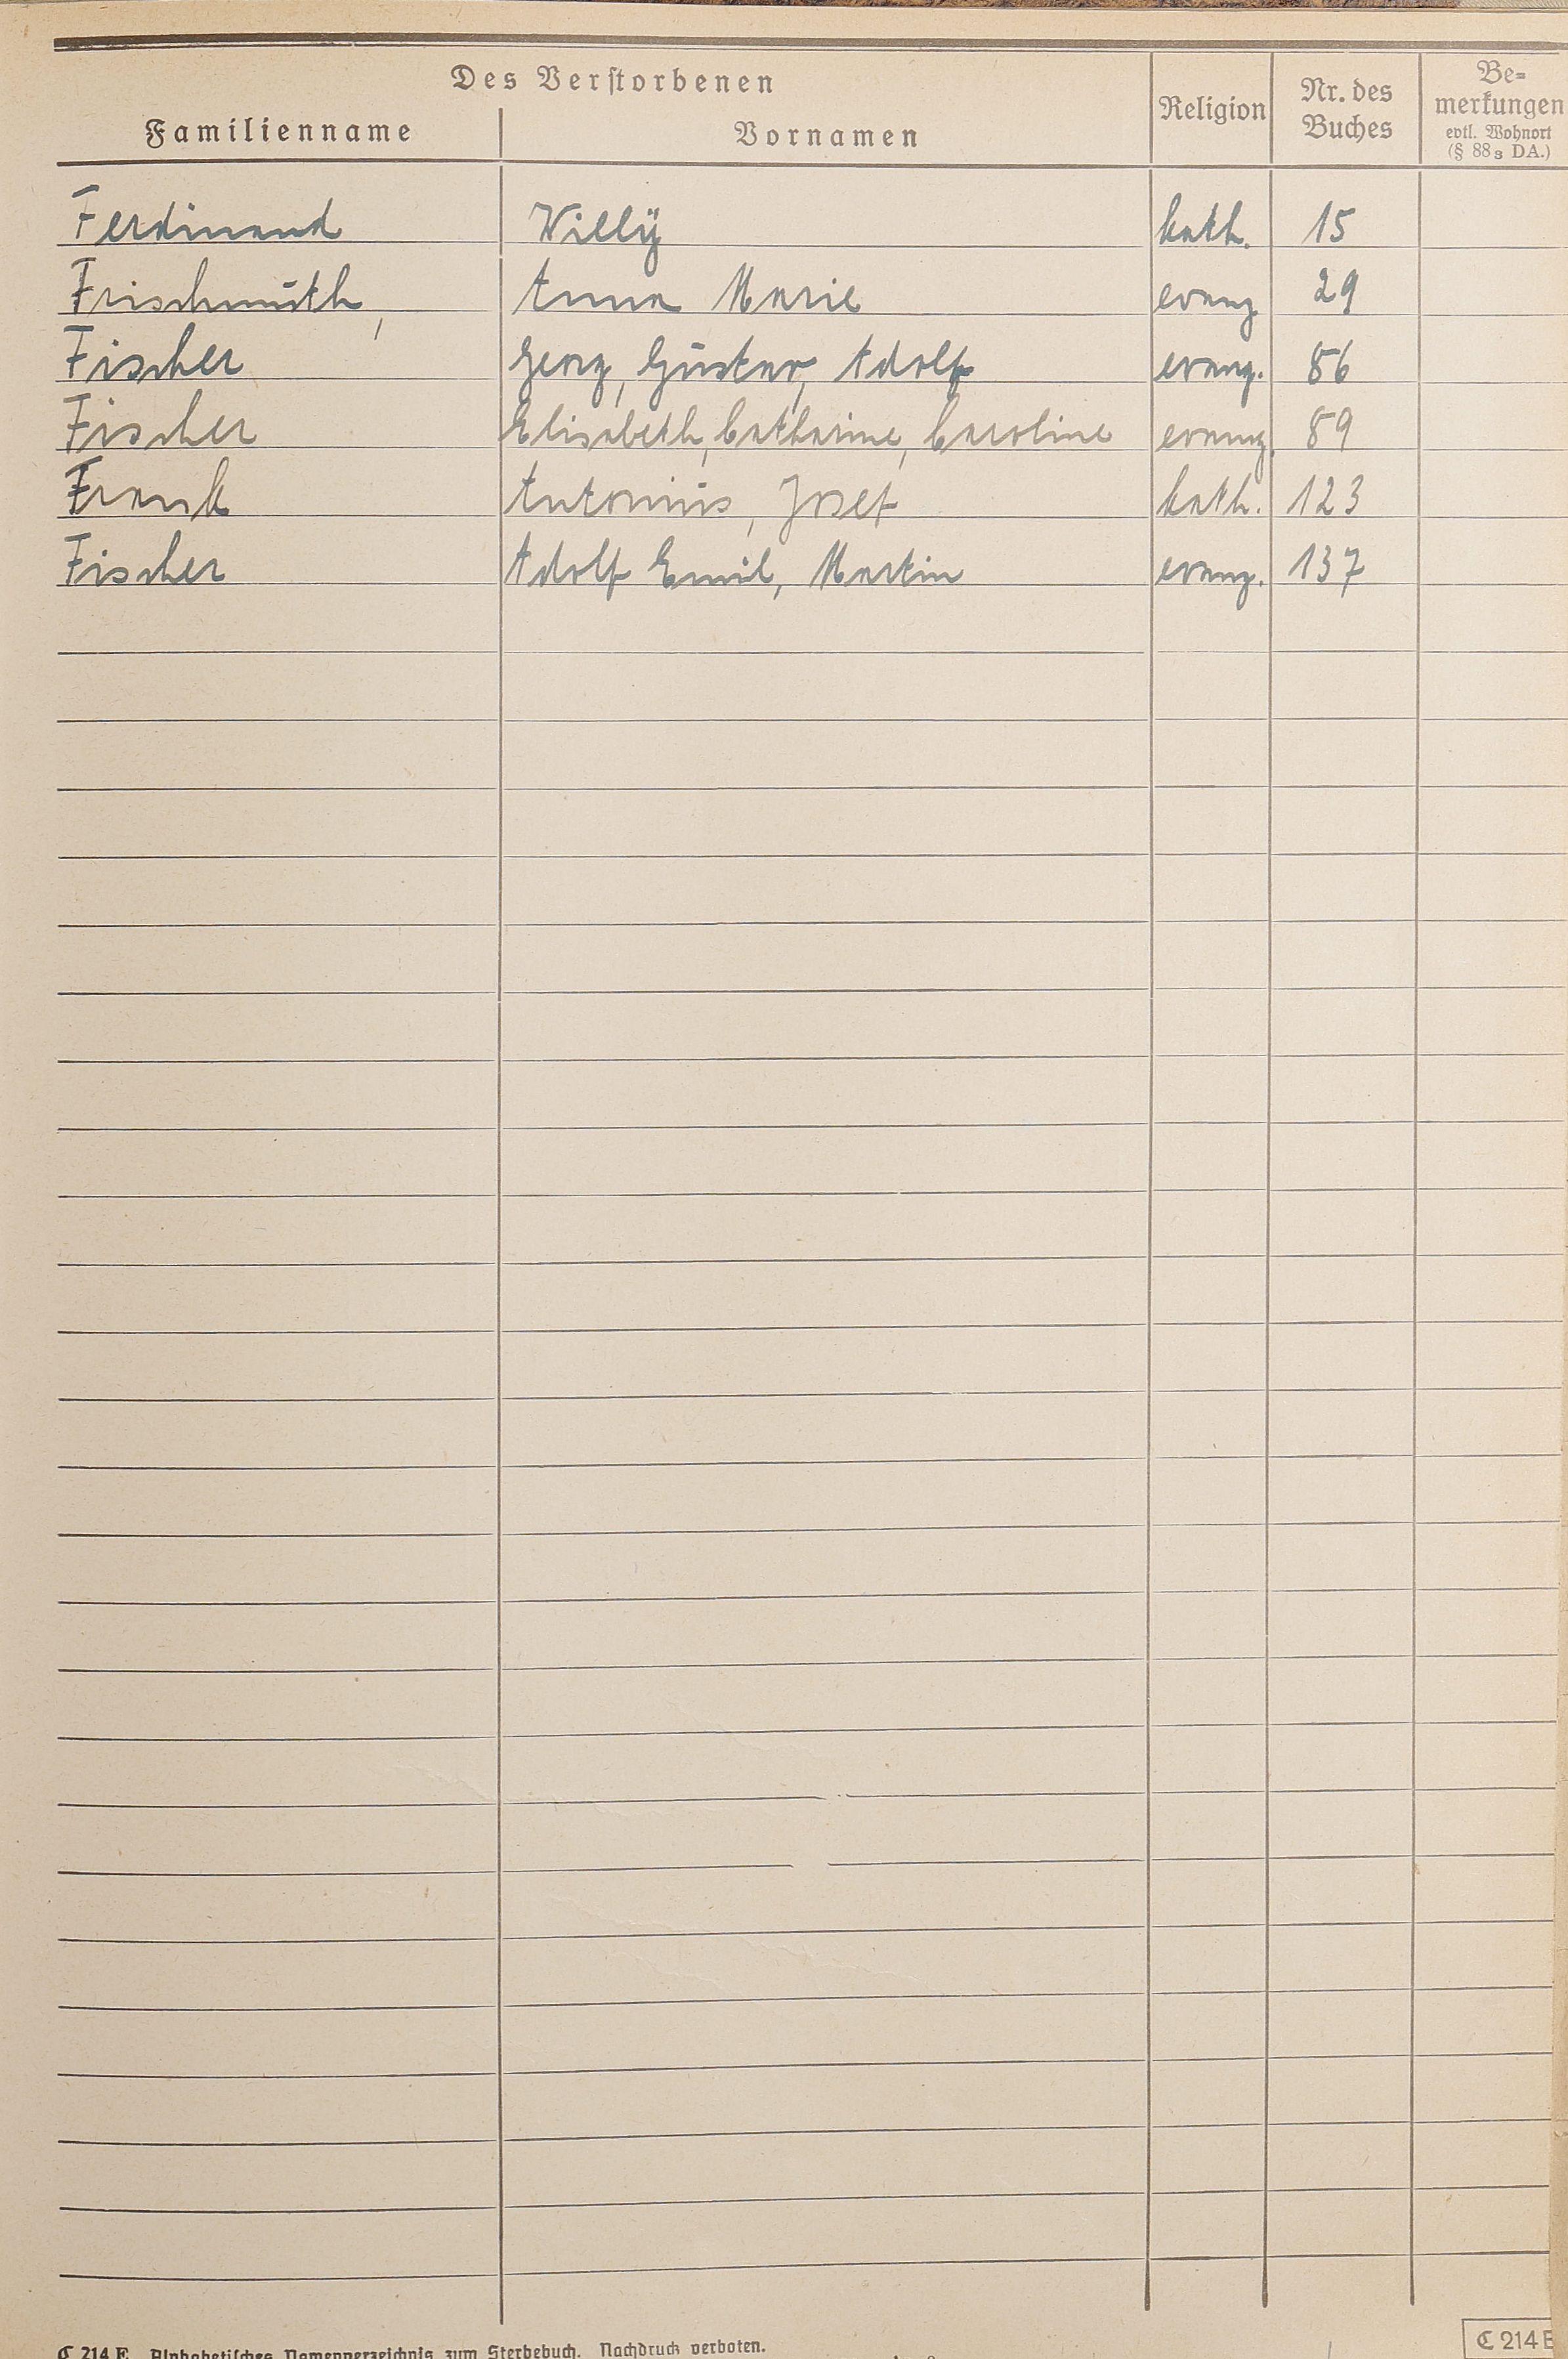 Des Verstorbenen
Familienname Vornamen Religion Nr. des Buches Be=merkungen evtl. Wohnort (§ 88 3 DA.)
Ferdinand Willy kath. 15
Frischmuth, Anna Marie evang. 29
Fischer Georg, Gustav, Adolf evang. 86
Fischer Elisabeth, Catharine, Caroline evang. 89
Frank Antonius, Josef kath. 123
Fischer Adolf Emil, Martin evang. 137
C 214 E Alphabetisches Namenverzeichnis zum Sterbebuch. Nachdruck verboten.
C 214 E